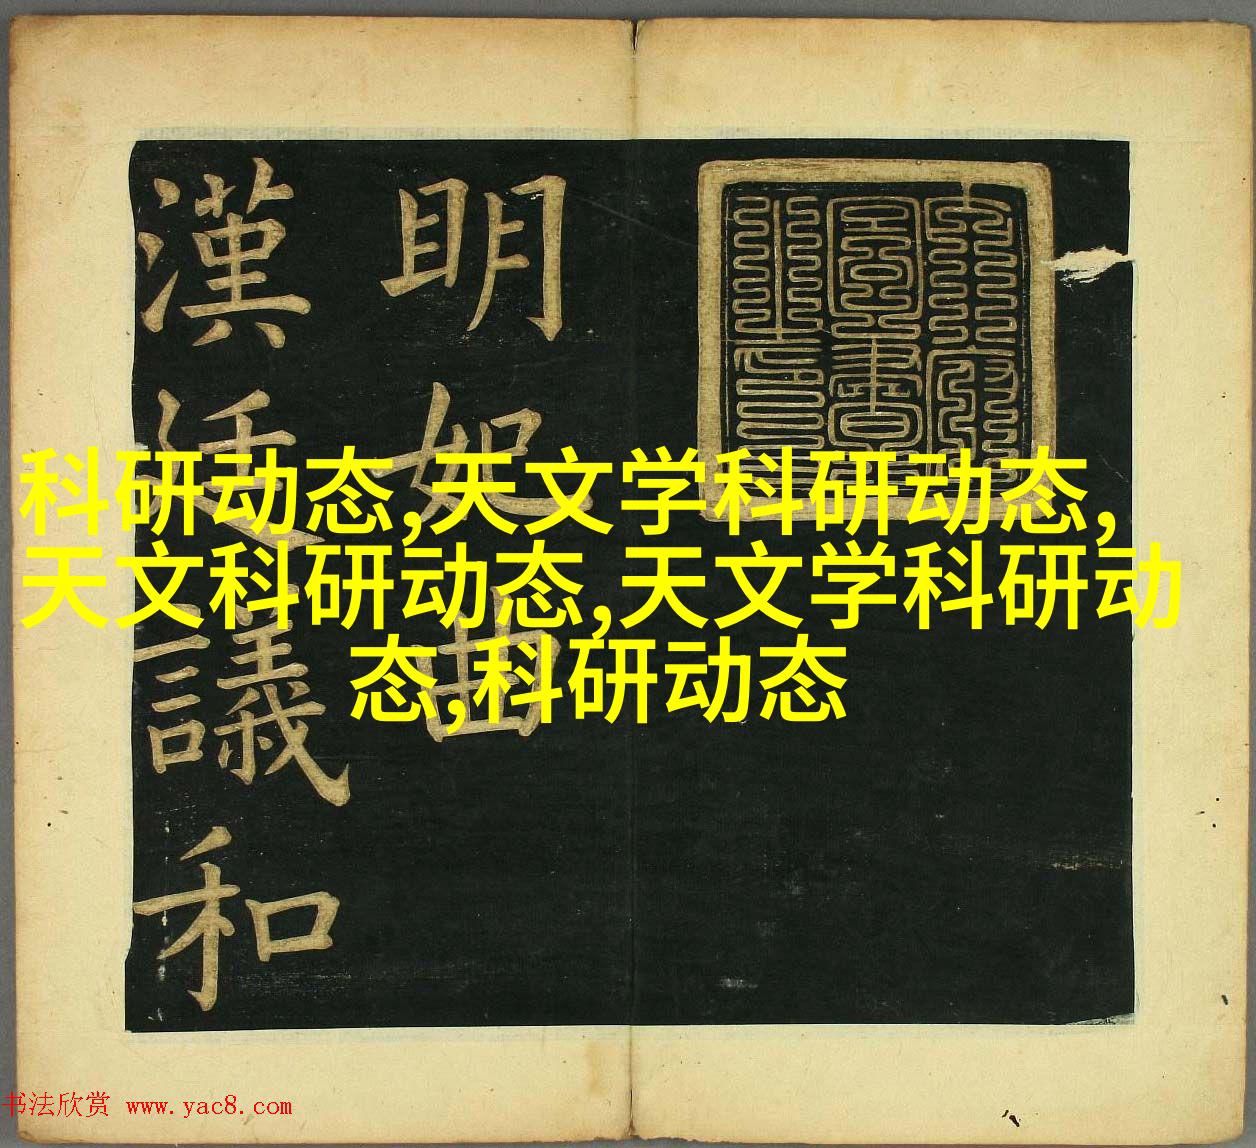 明妃曲
漢廷議和
科研动态,天文学科研动态,
天文科研动态,天文学科研动
态,科研动态
书法欣赏 www.yac8.com